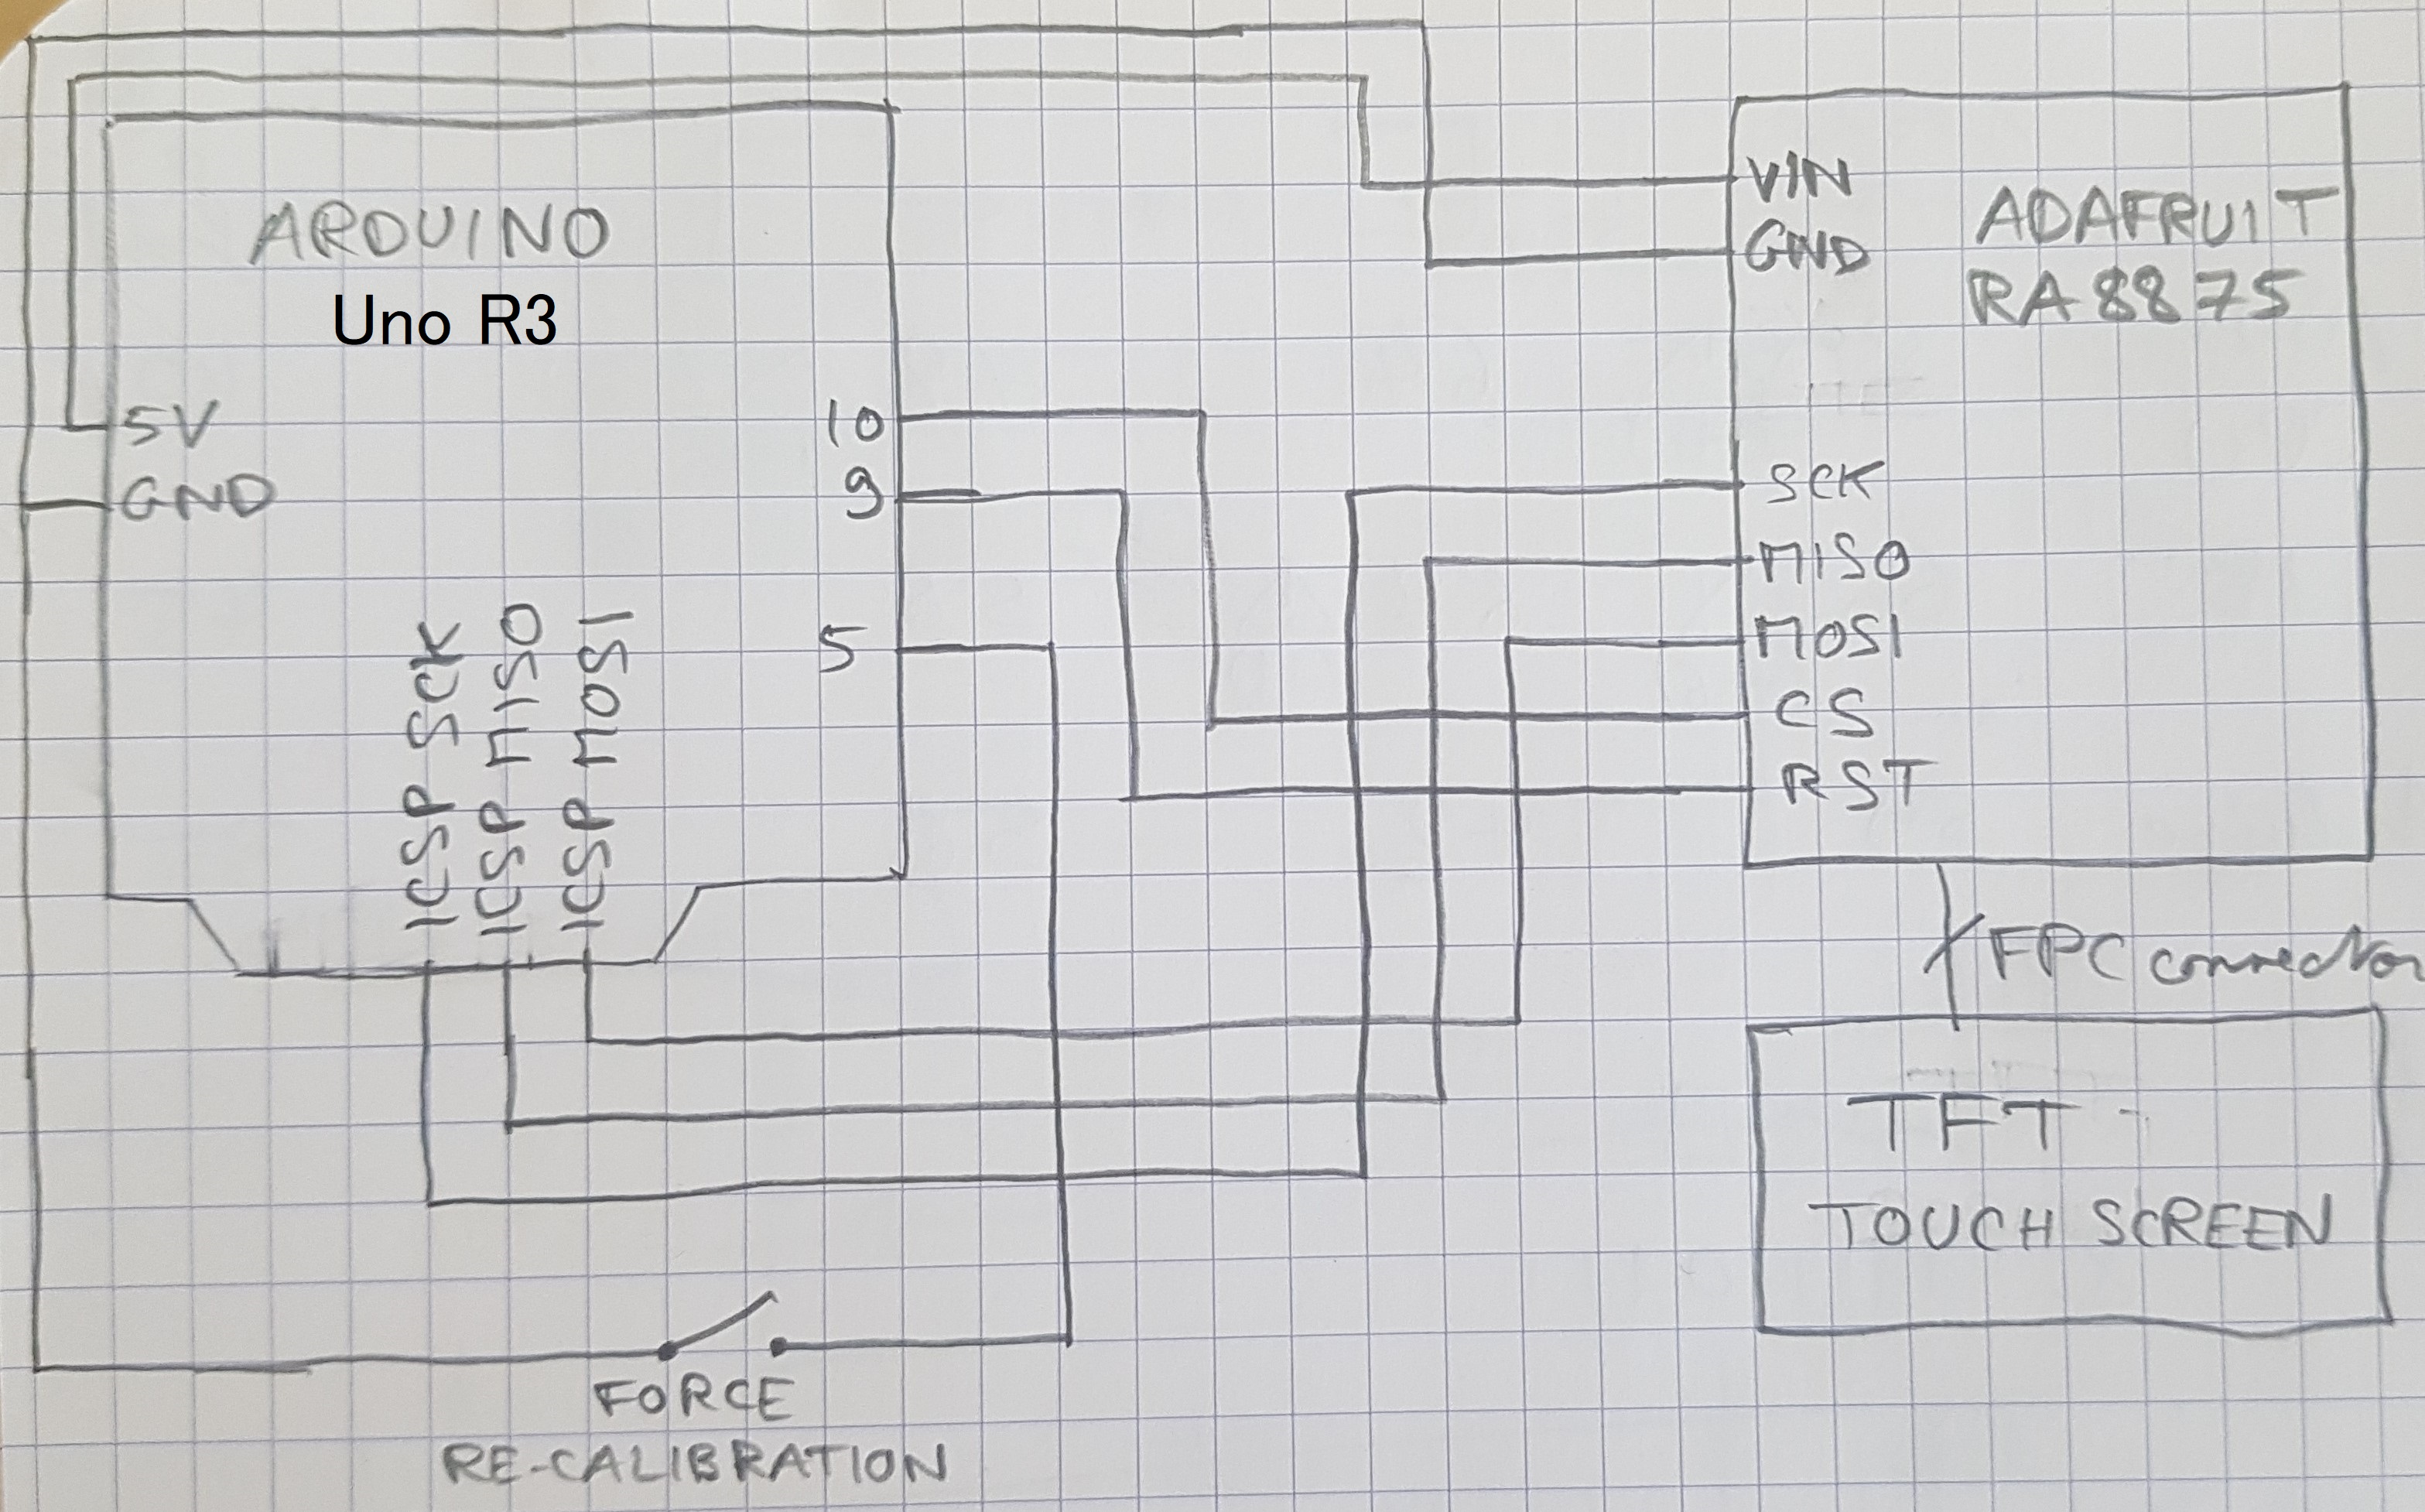 ARDUINO
Uno R3
5V
GND
10
9
5
ICSP SCK
ICSP MISO
ICSP MOSI
VIN
GND
ADAFRUIT
RA8875
SCK
MISO
MOSI
CS
RST
FPC connector
TFT
TOUCH SCREEN
FORCE
RE-CALIBRATION